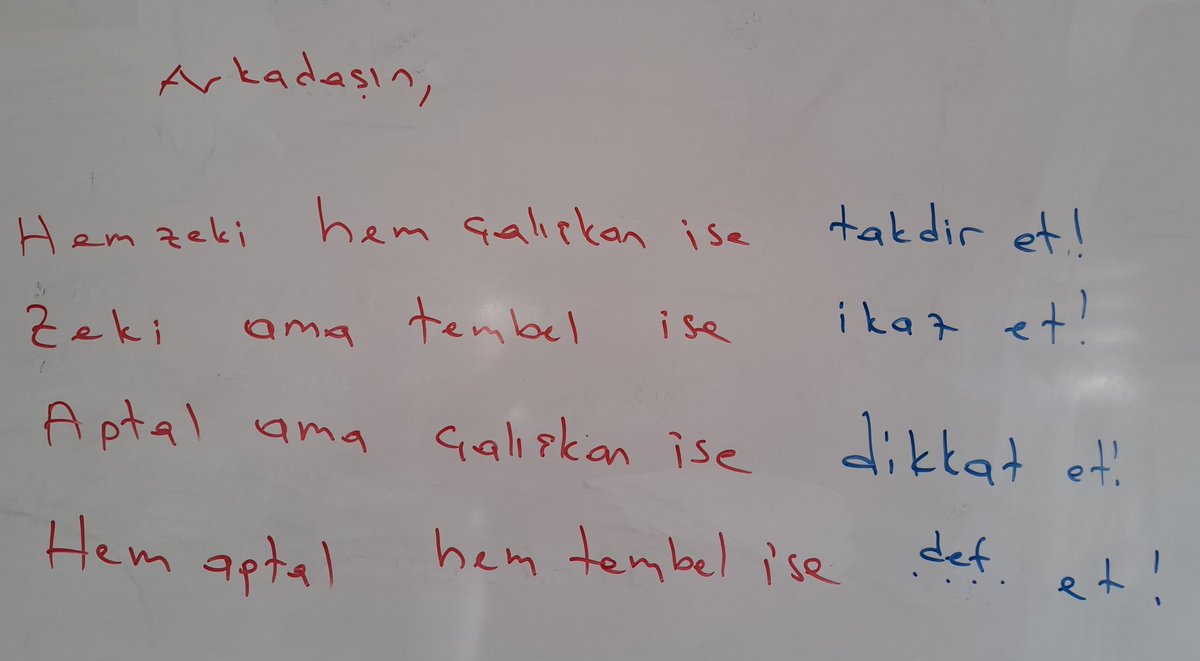 Arkadaşın,
Hem zeki hem çalışkan ise takdir et!
Zeki ama tembel ise ikaz et!
Aptal ama çalışkan ise dikkat et!
Hem aptal hem tembel ise def et!